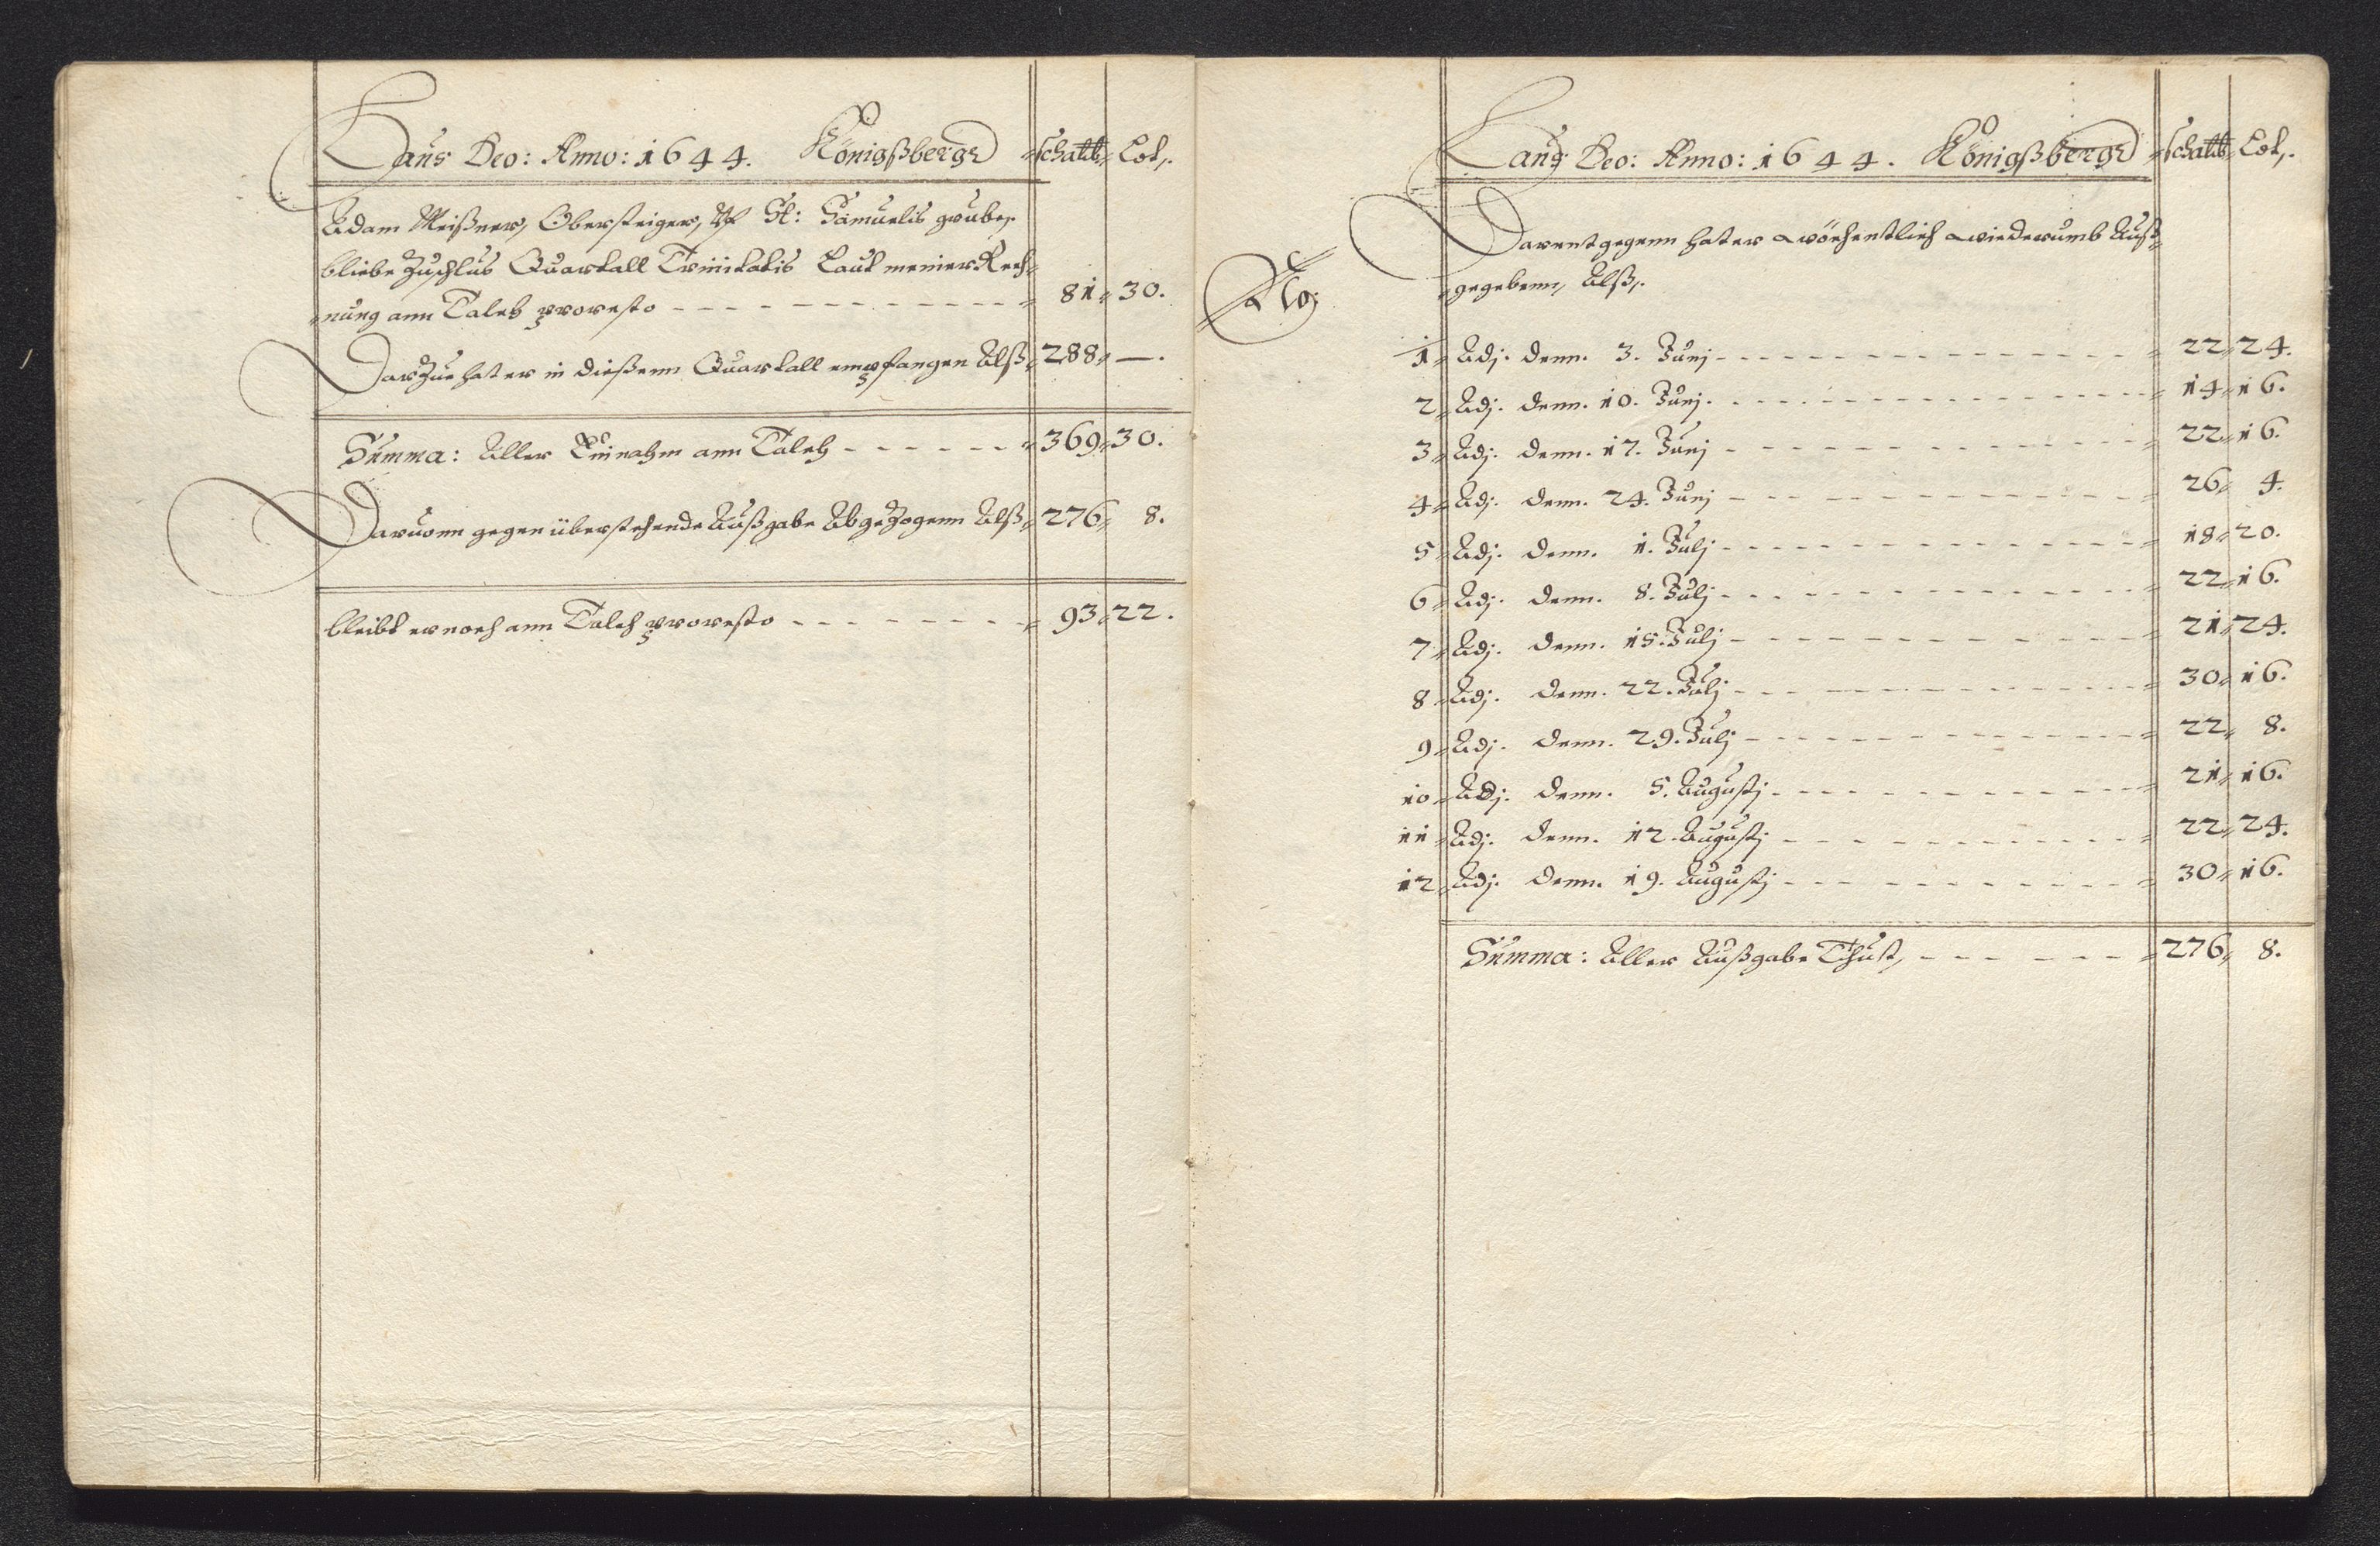 Laus Deo: Anno: 1644. Königßbergk Schalt Lot.
Adam Meißner, Obersteiger, Uf St: Samuelis grube,
bliebe Zuschlus Quartall Trinitatis Laut meiner Rech-
nung ann Taleh proresto - - - - 81 30.
Darzue hat er in dießenn Quartall empfangen Alß 288 —.
Summa: Aller Einahm ann Taleh - - - - 369 30.
Daruonn gegen überstehende Außgabe Abgezogenn Alß 276 8.
bleibt er noch ann Taleh proresto - - - - 93 22.
Laus Deo: Anno: 1644. Königßbergk Schalt Lot.
Darentgegenn hat er wöchentlich wiederumb Auß-
gegebenn, Alß,
No:
1 Adj. denn. 3. Junj - - - - 22 24.
2 Adj. denn. 10. Junj - - - - 14 16.
3 Adj. denn. 17. Junj - - - - 22 16.
4 Adj. denn. 24. Junj - - - - 26 4.
5 Adj. denn. 1. Julj - - - - 18 20.
6 Adj. denn. 8. Julj - - - - 22 16.
7 Adj. denn. 15. Julj - - - - 21 24.
8 Adj. denn. 22. Julj - - - - 30 16.
9 Adj. denn. 29. Julj - - - - 22 8.
10 Adj. denn. 5. Augustj - - - - 21 16.
11 Adj. denn. 12. Augustj - - - - 22 24.
12 Adj. denn. 19. Augustj - - - - 30 16.
Summa: Aller Außgabe Thust, - - - - 276 8.